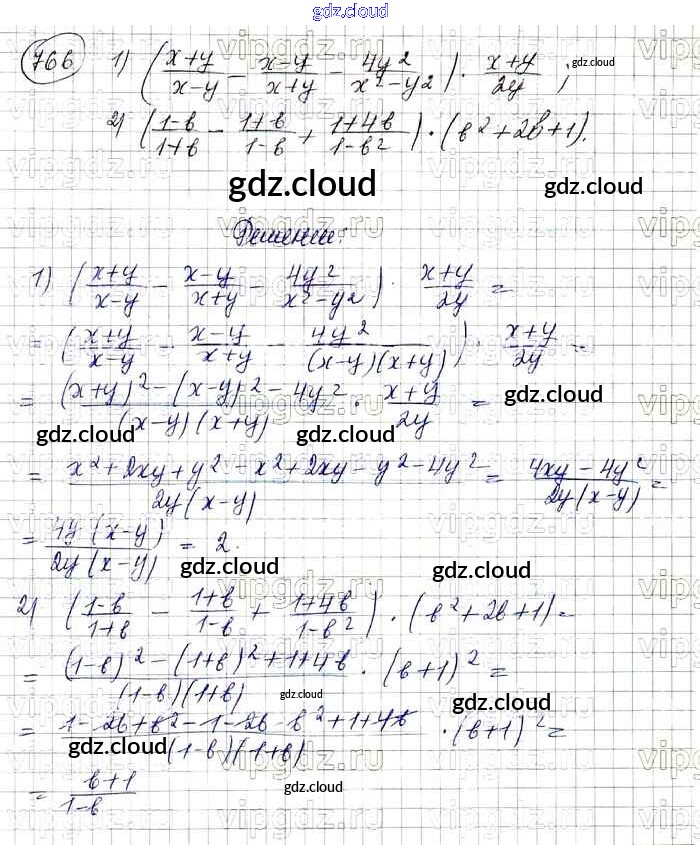 gdz.cloud
766 1) ((x+y)/(x-y) - (x-y)/(x+y) - 4y²/(x²-y2)) · (x+y)/2y ;
gdz.cloud
2) ((1-в)/(1+в) - (1+в)/(1-в) + (1+4в)/(1-в²)) · (в²+2в+1).
gdz.cloud
gdz.cloud
Решение:
1) ((x+y)/(x-y) - (x-y)/(x+y) - 4y²/(x²-y2)) · (x+y)/2y =
= ((x+y)/(x-y) - (x-y)/(x+y) - 4y²/((x-y)(x+y))) · (x+y)/2y =
= ((x+y)² - (x-y)² - 4y²)/((x-y)(x+y)) · (x+y)/2y =
gdz.cloud
gdz.cloud gdz.cloud
= (x²+2xy+y²-x²+2xy-y²-4y²)/(2y(x-y)) = (4xy-4y²)/(2y(x-y)) =
= 4y(x-y)/(2y(x-y)) = 2.
gdz.cloud gdz.cloud
2) ((1-в)/(1+в) - (1+в)/(1-в) + (1+4в)/(1-в²)) · (в²+2в+1) =
= ((1-в)² - (1+в)² + 1+4в)/((1-в)(1+в)) · (в+1)² =
gdz.cloud gdz.cloud
= (1-2в+в²-1-2в-в²+1+4в)/((1-в)(1+в)) · (в+1)² =
gdz.cloud
= (в+1)/(1-в)
gdz.cloud